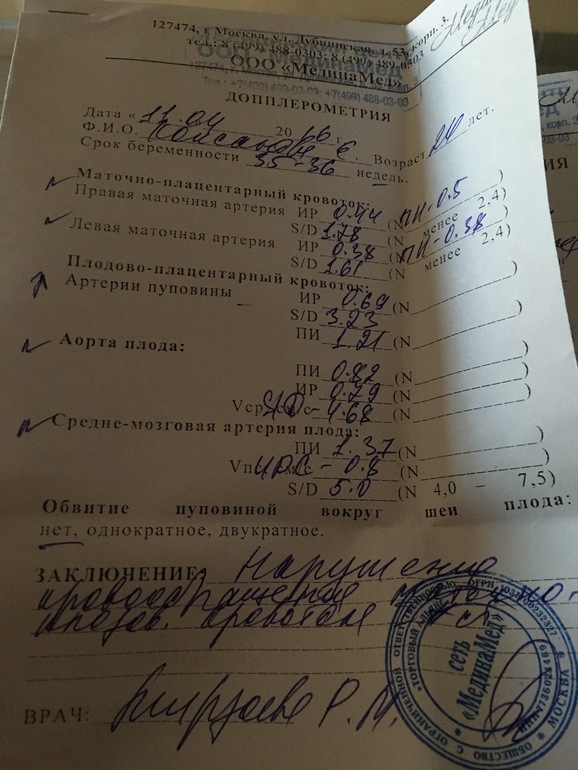 127474, г. Москва, ул. Дубнинская д. 53, корп. 3.
тел.: 8 (499) 488-0303, 8 (499) 489-0303
ООО «МединаМед»
Тел.: +7(499) 488-03-03; +7(499) 488-03-03
ДОППЛЕРОМЕТРИЯ
Дата « 11.04 20 г.
Ф.И.О. Возраст лет.
Срок беременности 35-36 недель.
Маточно-плацентарный кровоток:
Правая маточная артерия ИР 0.44 (N ПИ-0.5 )
S/D 1.78 (N менее 2,4)
Левая маточная артерия ИР 0.38 (N ПИ-0.38 )
S/D 1.61 (N менее 2,4)
Плодово-плацентарный кровоток:
Артерии пуповины ИР 0.69 (N )
S/D 3.23 (N )
ПИ 1.21 (N )
Аорта плода:
ПИ 0.82 (N )
ИР 0.79 (N )
S/D-4.68 (N )
Средне-мозговая артерия плода:
ПИ 1.37 (N )
- 0.8 (N )
S/D 5.0 (N 4,0 – 7,5)
Обвитие пуповиной вокруг шеи плода:
нет, однократное, двукратное.
ЗАКЛЮЧЕНИЕ: Нарушение
ВРАЧ: Р. М.
сеть «МединаМед»
МОСКВА